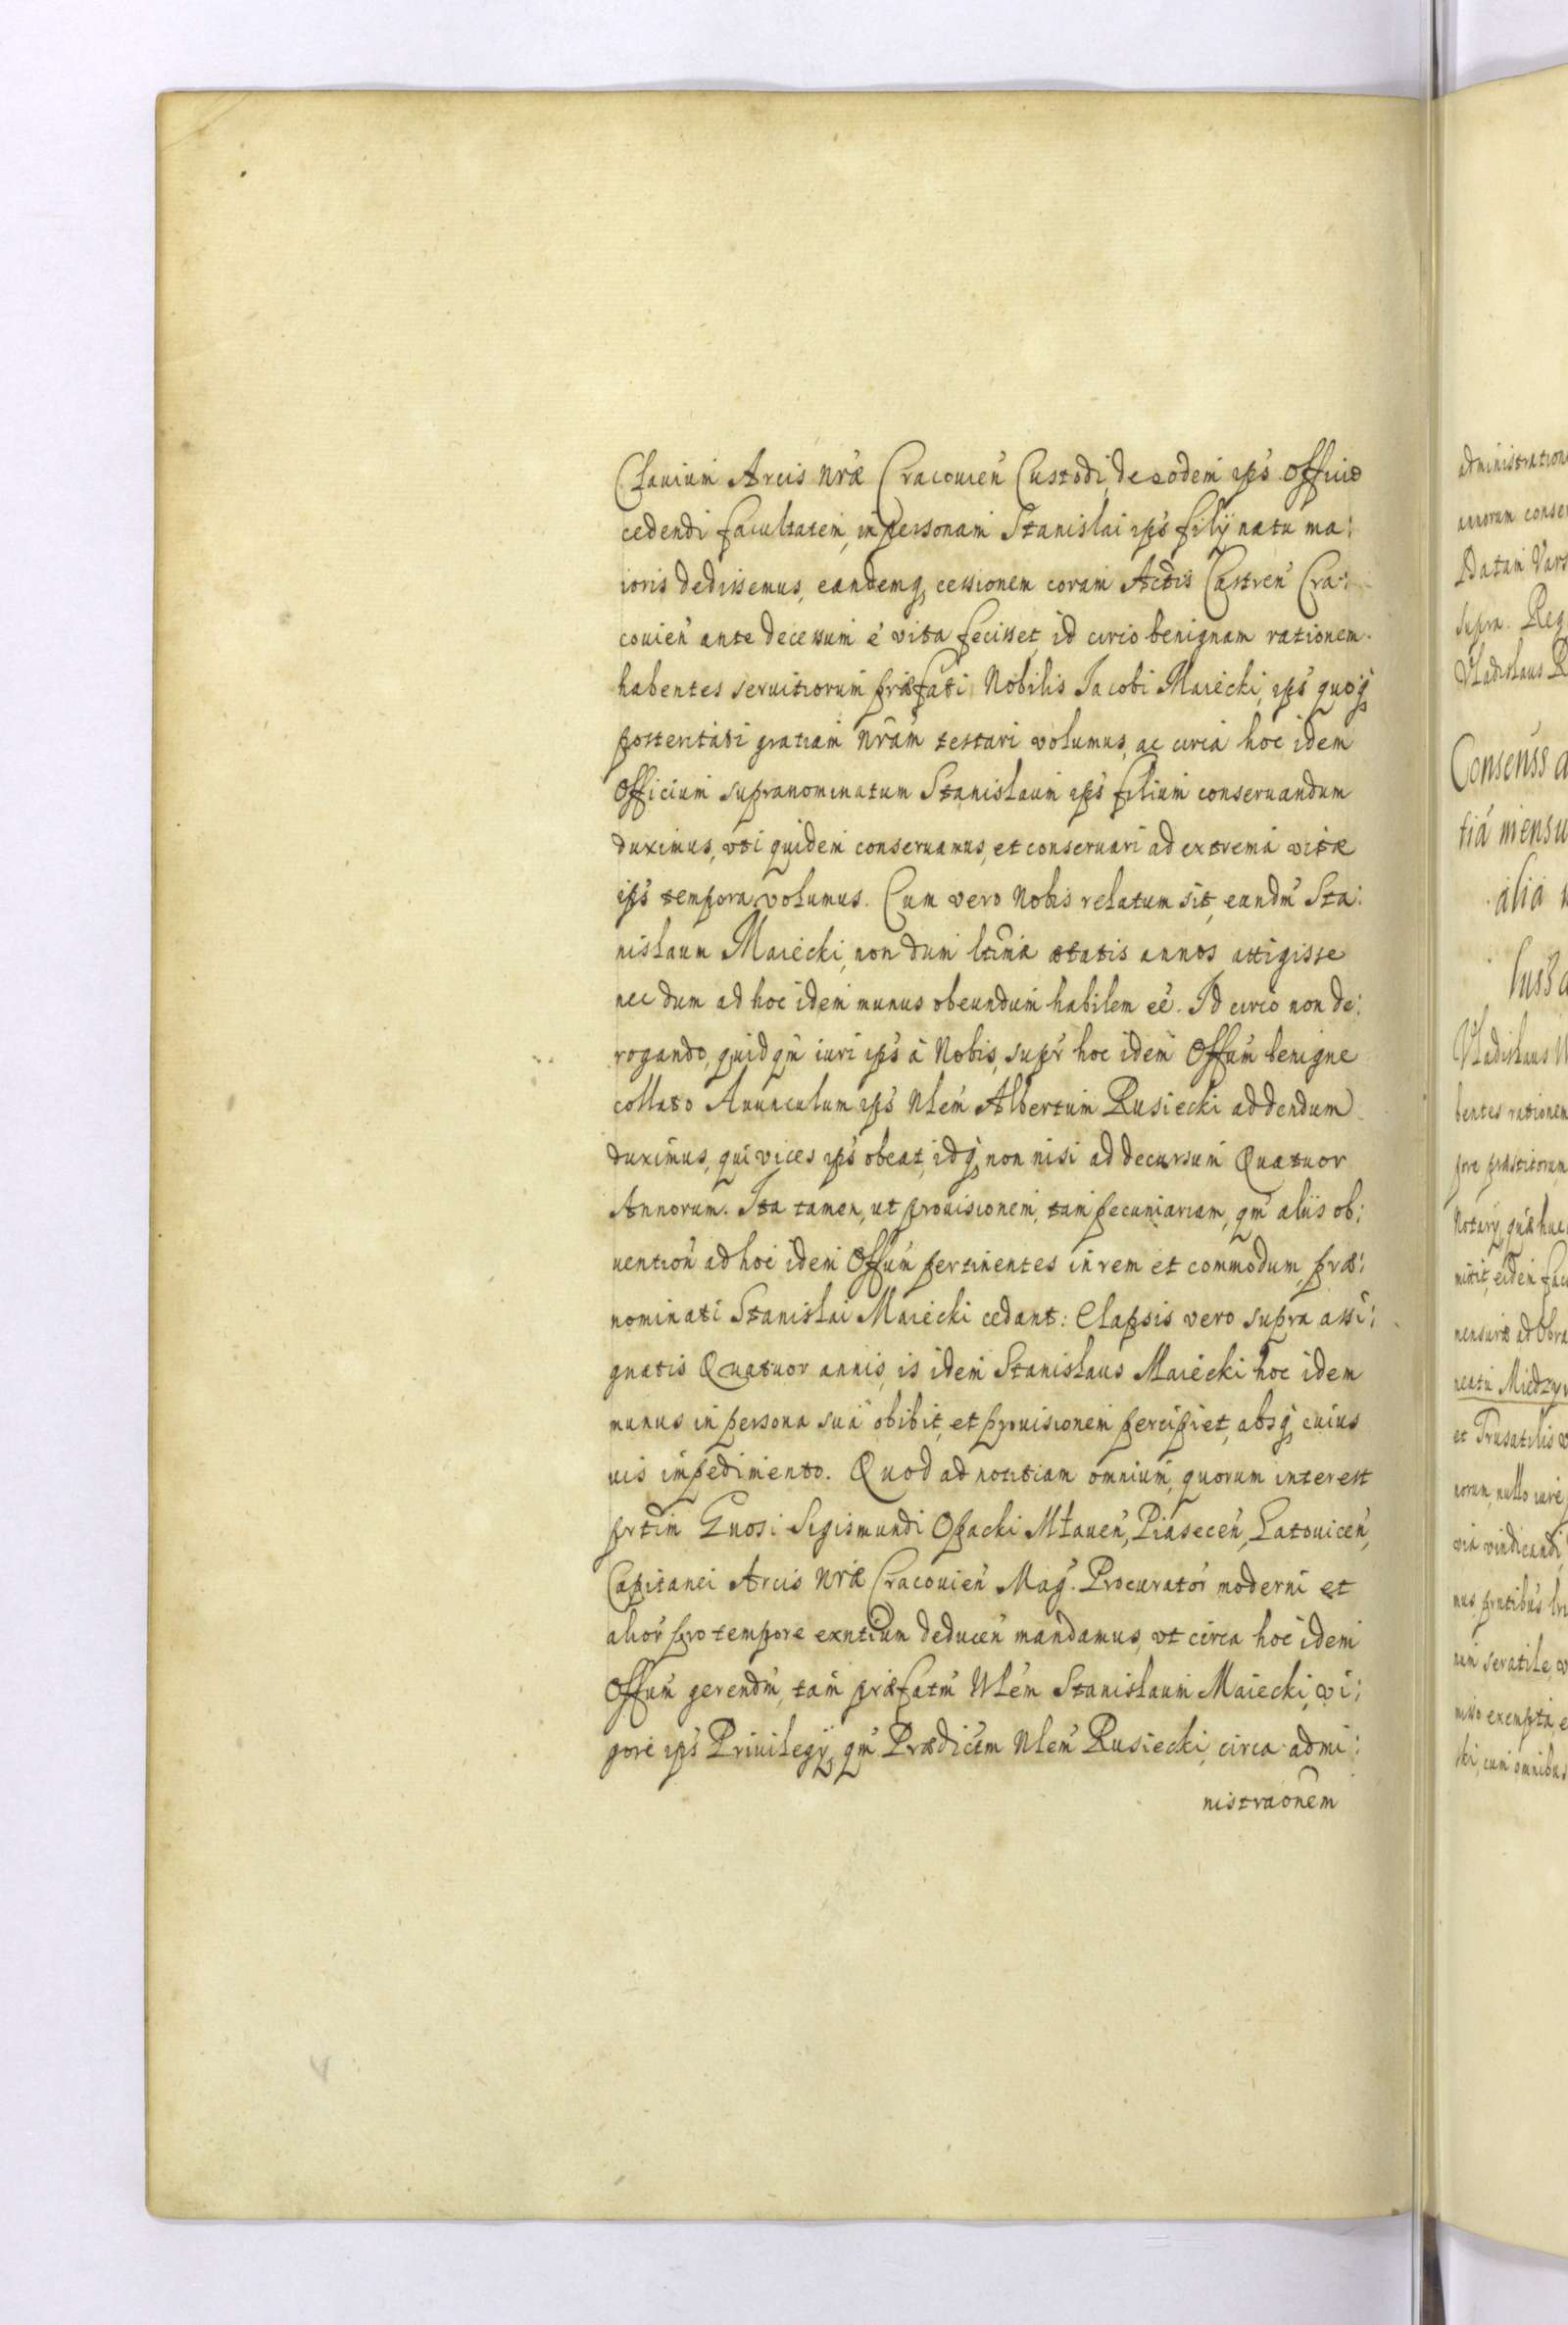 Clauium Arcis nrae Cracouien Custodi, de eodem ips officio
cedendi facultatem, in personam Stanislai ips filij natu ma:
ioris dedissemus, eandemq cessionem coram Actis Castren Cra:
couien ante decessum è vita fecisset, id circo benignam rationem
habentes seruitiorum praefati Nobilis Jacobi Maiecki, ips quoq
posteritati gratiam nram testari volumus, ac circa hoc idem
officium supranominatum Stanislaum ips filium conseruandum
duximus, vti quidem conseruamus, et conseruari ad extrema vitae
ips tempora volumus. Cum vero Nobis relatum sit, eandm Sta:
nislaum Maiecki, non dum ltimae aetatis annos attigisse
nec dum ad hoc idem munus obeundum habilem eé. Id circo non de:
rogando, quidqm iuri ips à Nobis, supr hoc idem Offum benigne
collato Auunculum ips Nlem Albertum Rusiecki addendum
duximus, qui vices ips obeat, idq non nisi ad decursum Quatuor
Annorum. Ita tamen, ut prouisionem, tam pecuniariam, qm aliis ob:
uention ad hoc idem Offum pertinentes in rem et commodum, prae:
nominati Stanislai Maiecki cedant: Elapsis vero supra assi:
gnatis Quatuor annis, is idem Stanislaus Maiecki hoc idem
munus in persona sua obibit, et prouisionem percipiet, absq cuius
uis impedimento. Quod ad notitiam omnium, quorum interest
prtim Gnosi Sigismundi Opacki Mławen, Piasecen, Latouicen,
Capitanei Arcis nrae Cracouien Mag. Procurator moderni et
alior pro tempore exntium deducen mandamus, vt circa hoc idem
Offum gerendm, tam praefatm Nlem Stanislaum Maiecki, vi:
gore ips Priuilegij, qm Praedictm Nlem Rusiecki, circa admi:
nistraonem
administration
annorum conse
Datam Vars
supra. Reg
Vladislaus R
Consenss a
tiá mensu
alia
Iussa
Vladislaus
bentes rationem
pore praestitorum
Notarij, quae huc
mittit, eidem fac
mensurae ad Obra
neatu Miedzy
et Trusatilis
uorum, nullo iure,
via vindicandi
mus, prntibus
nim seratile
misso exempta e
ki, cum omnibus